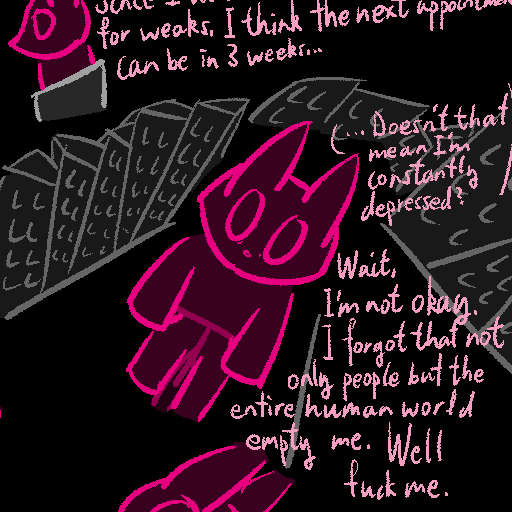 for weaks. I think the next appointment
can be in 3 weeks...
(... Doesn't that
mean I'm
constantly
depressed?
Wait,
I'm not okay.
I forgot that not
only people but the
entire human world
empty me. Well
fuck me.